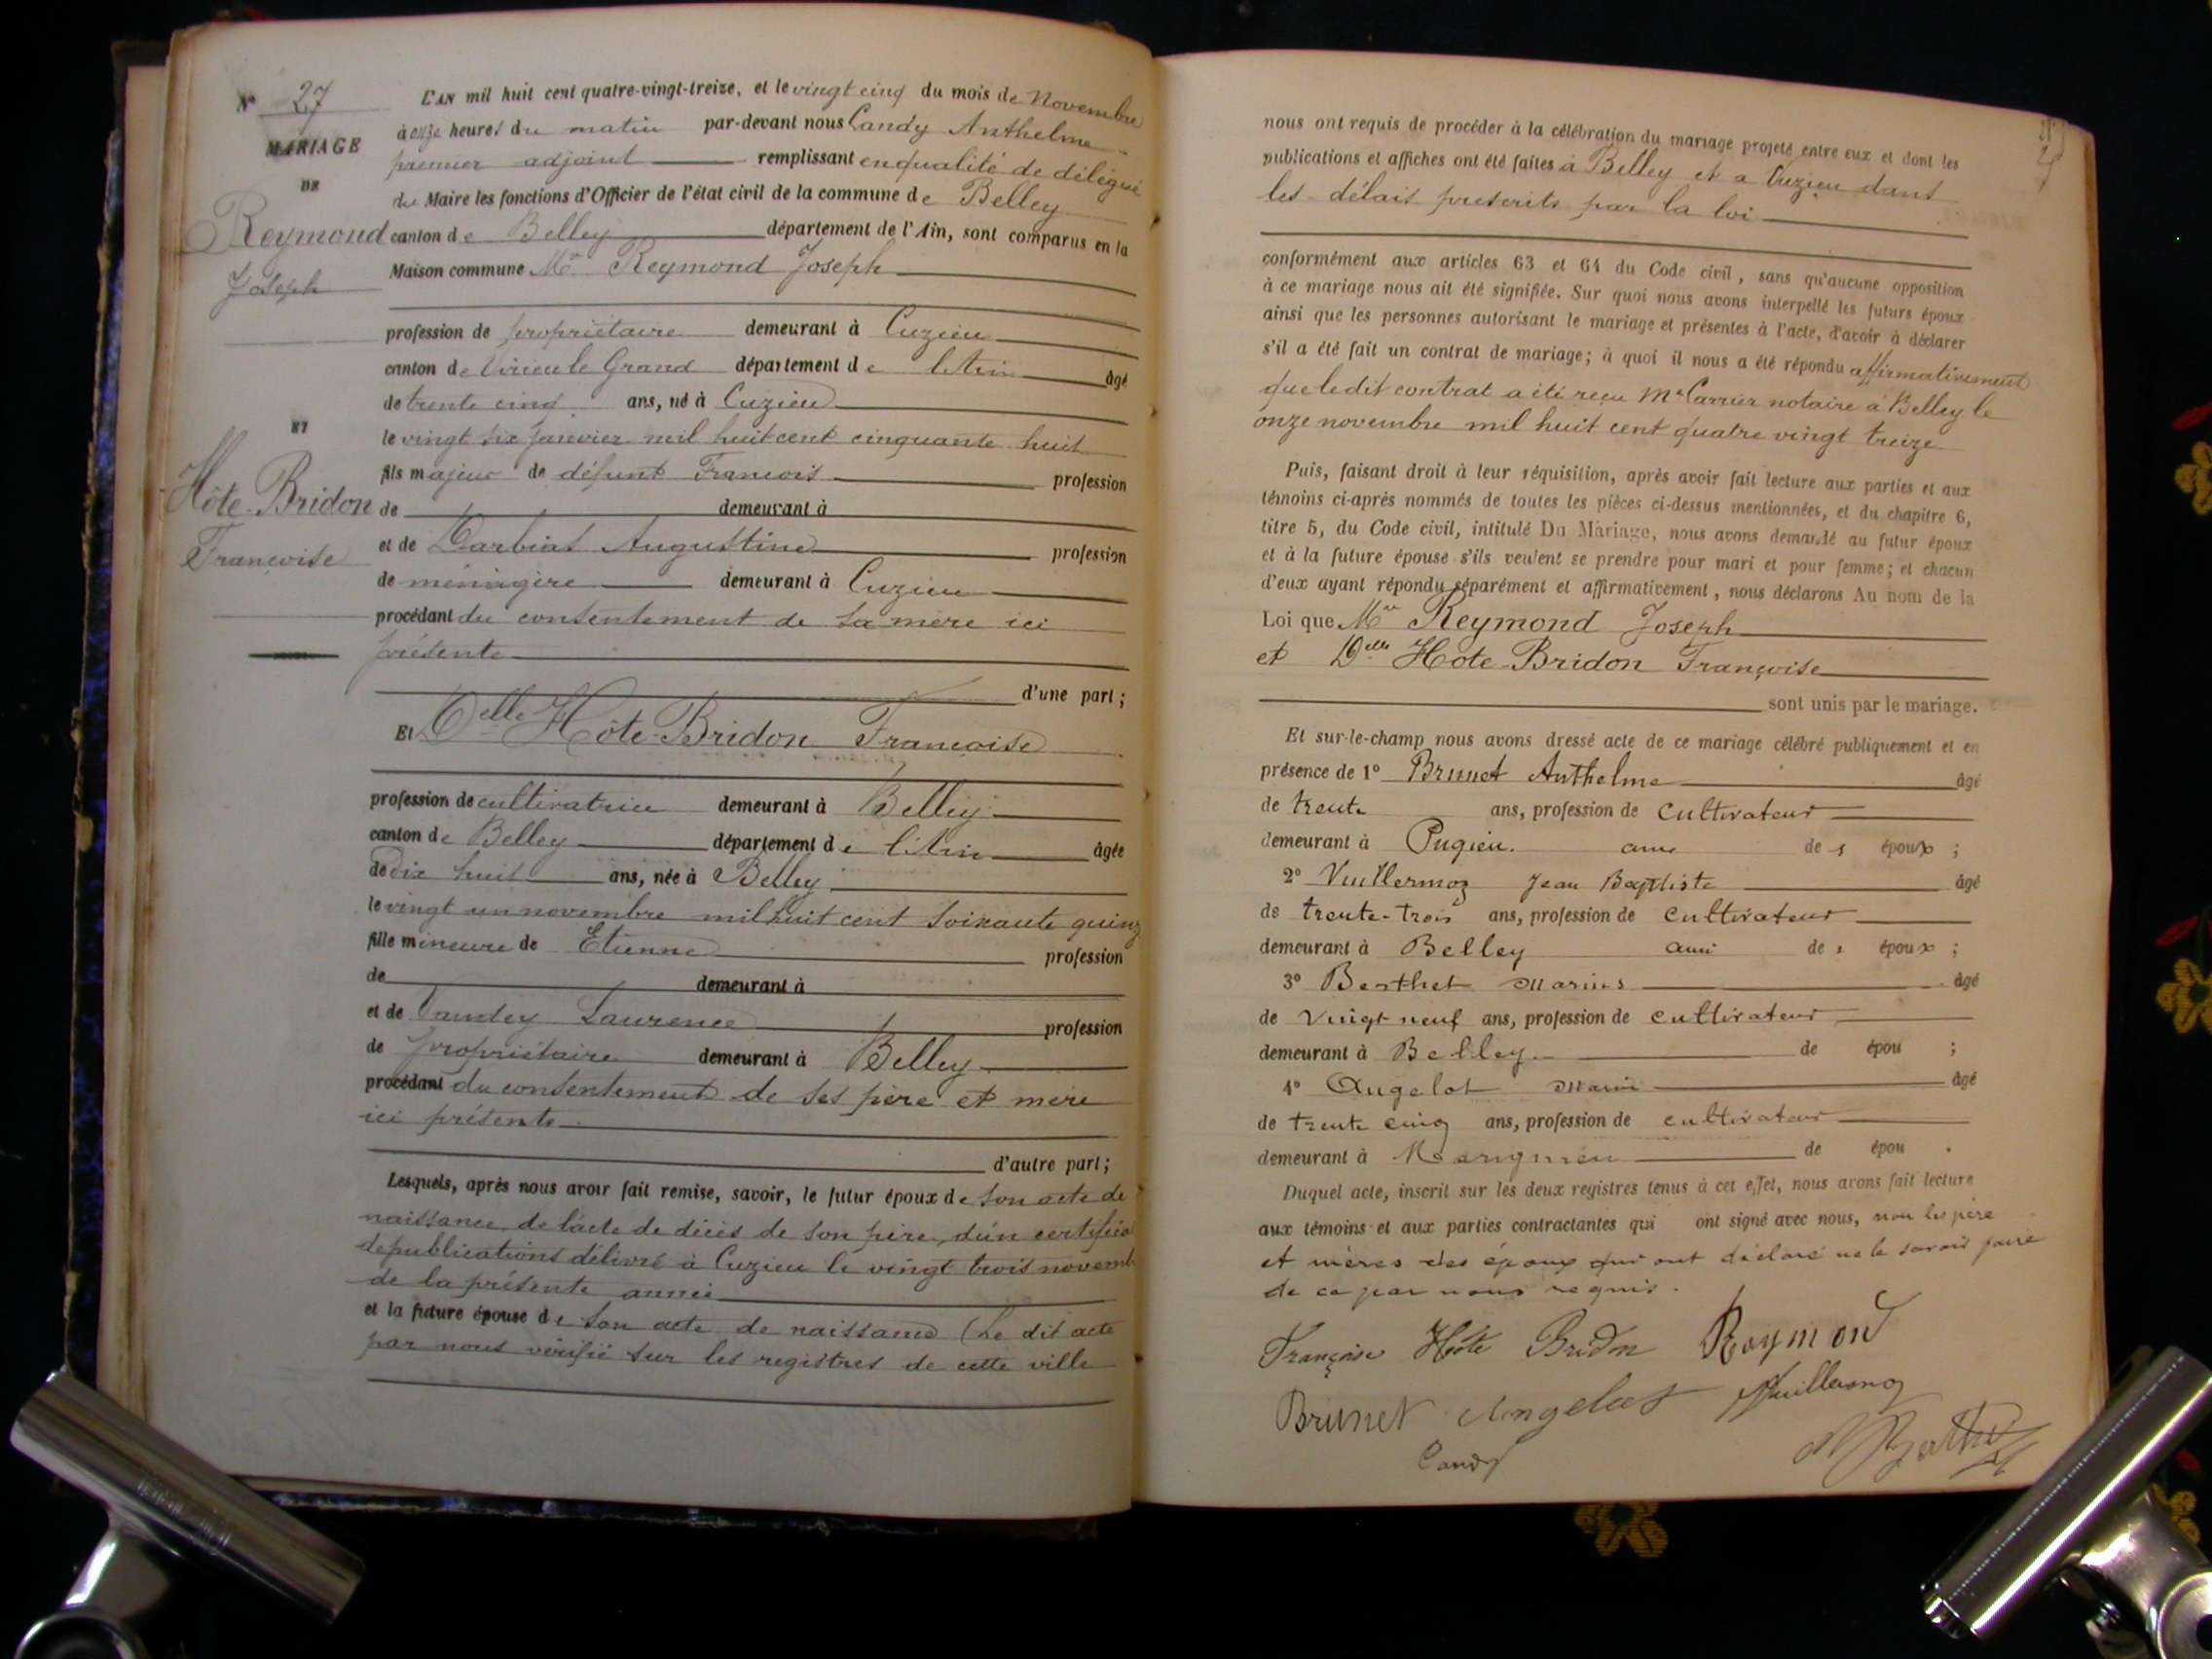 N° 27
MARIAGE
DE
Reymond
Joseph
ET
Hôte-Bridon
Françoise
L'AN mil huit cent quatre-vingt-treize, et le vingt cinq du mois de Novembre
à onze heures du matin par-devant nous Candy Anthelme
premier adjoint remplissant en qualité de délégué
du Maire les fonctions d'Officier de l'état civil de la commune de Belley
canton de Belley département de l'Ain, sont comparus en la
Maison commune Mr Reymond Joseph
profession de propriétaire demeurant à Cuzieu
canton de Virieu le Grand département de l'Ain âgé
de trente cinq ans, né à Cuzieu
le vingt six Janvier mil huit cent cinquante huit
fils majeur de défunt Francois profession
de demeurant à
et de Darbiat Augustine profession
de ménagère demeurant à Cuzieu
procédant du consentement de sa mère ici
présente
d'une part;
Et Delle Hôte-Bridon Francoise
profession de cultivatrice demeurant à Belley
canton de Belley département de l'Ain âgée
de dix huit ans, née à Belley
le vingt un novembre mil huit cent soixante quinz
fille mineure de Etienne profession
de demeurant à
et de Laurence profession
de propriétaire demeurant à Belley
procédant du consentement de ses père et mère
ici présents
d'autre part;
Lesquels, après nous avoir fait remise, savoir, le futur époux de son acte de
naissance de l'acte de décès de son père, d'un certificat
de publications délivré à Cuzieu le vingt trois novemb
de la présente année
et la future épouse de son acte de naissance (Le dit acte
par nous vérifié sur les registres de cette ville
nous ont requis de procéder à la célébration du mariage projeté entre eux et dont les
publications et affiches ont été faites à Belley et a Cuzieu dans
les délais prescrits par la loi
conformément aux articles 63 et 64 du Code civil, sans qu'aucune opposition
à ce mariage nous ait été signifiée. Sur quoi nous avons interpellé les futurs époux
ainsi que les personnes autorisant le mariage et présentes à l'acte, d'avoir à déclarer
s'il a été fait un contrat de mariage; à quoi il nous a été répondu affirmativement
que ledit contrat a été reçu Me Carrier notaire à Belley le
onze novembre mil huit cent quatre vingt treize
Puis, faisant droit à leur réquisition, après avoir fait lecture aux parties et aux
témoins ci-après nommés de toutes les pièces ci-dessus mentionnées, et du chapitre 6,
titre 5, du Code civil, intitulé Du Mariage, nous avons demandé au futur époux
et à la future épouse s'ils veulent se prendre pour mari et pour femme; et chacun
d'eux ayant répondu séparément et affirmativement, nous déclarons Au nom de la
Loi que Mr Reymond Joseph
et Delle Hôte-Bridon Françoise
sont unis par le mariage.
Et sur-le-champ nous avons dressé acte de ce mariage célébré publiquement et en
présence de 1° Brunet Anthelme âgé
de trente ans, profession de cultivateur
demeurant à Pugieu. ami des époux ;
2° Vuillermoz Jean Baptiste âgé
de trente-trois ans, profession de cultivateur
demeurant à Belley ami des époux ;
3° Berthet Marius âgé
de vingt neuf ans, profession de cultivateur
demeurant à Belley. de épou ;
4° Angelot Marie âgé
de trente cinq ans, profession de cultivateur
demeurant à Marignieu de épou .
Duquel acte, inscrit sur les deux registres tenus à cet effet, nous avons fait lecture
aux témoins et aux parties contractantes qui ont signé avec nous, non les père
et mères des époux qui ont déclaré ne le savoir faire
de ce par nous requis.
Françoise Hôte Bridon Raymond
Brunet Angelot Vuillermoz
Candy M Berthet